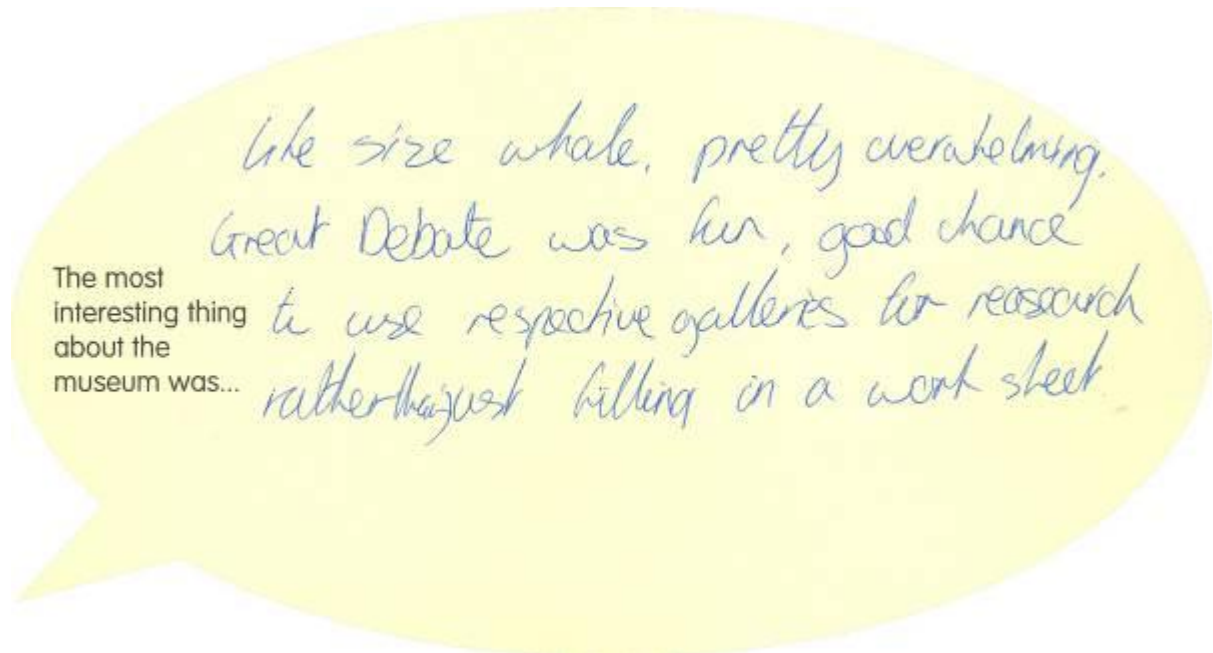 The most
interesting thing
about the
museum was...
Life size whale, pretty overwhelming.
Great Debate was fun, good chance
to use respective galleries for reasearch
rather than just filling in a work sheet.